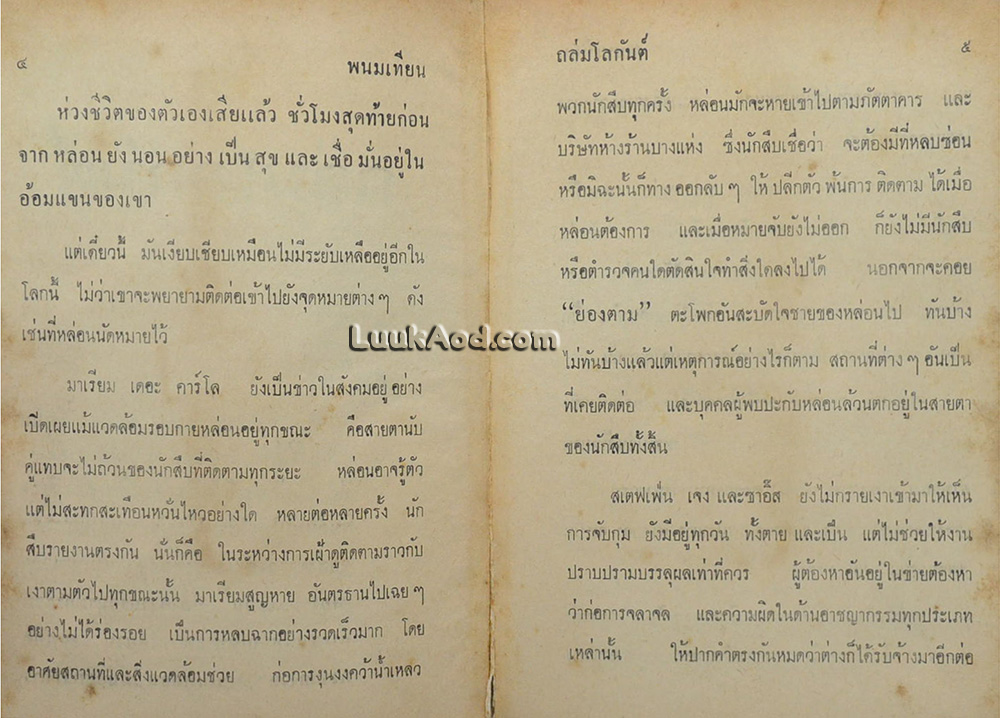 ๔
พนมเทียน
ห่วงชีวิตของตัวเองเสียแล้ว ชั่วโมงสุดท้ายก่อน
จาก หล่อน ยัง นอน อย่าง เป็น สุข และ เชื่อ มั่นอยู่ใน
อ้อมแขนของเขา
แต่เดี๋ยวนี้ มันเงียบเชียบเหมือนไม่มีระยับเหลืออยู่อีกใน
โลกนี้ ไม่ว่าเขาจะพยายามติดต่อเข้าไปยังจุดหมายต่าง ๆ ดัง
เช่นที่หล่อนนัดหมายไว้
มาเรียม เดอะ คาร์โล ยังเป็นข่าวในสังคมอยู่ อย่าง
เปิดเผยแม้แวดล้อมรอบกายหล่อนอยู่ทุกขณะ คือสายตานับ
คู่แทบจะไม่ถ้วนของนักสืบที่ติดตามทุกระยะ หล่อนอาจรู้ตัว
แต่ไม่สะทกสะเทือนหวั่นไหวอย่างใด หลายต่อหลายครั้ง นัก
สืบรายงานตรงกัน นั่นก็คือ ในระหว่างการเฝ้าดูติดตามราวกับ
เงาตามตัวไปทุกขณะนั้น มาเรียมสูญหาย อันตรธานไปเฉย ๆ
อย่างไม่ได้ร่องรอย เป็นการหลบฉากอย่างรวดเร็วมาก โดย
อาศัยสถานที่และสิ่งแวดล้อมช่วย ก่อการงุนงงคว้าน้ำเหลว
ถล่มโลกันต์
๕
พวกนักสืบทุกครั้ง หล่อนมักจะหายเข้าไปตามภัตตาคาร และ
บริษัทห้างร้านบางแห่ง ซึ่งนักสืบเชื่อว่า จะต้องมีที่หลบซ่อน
หรือมิฉะนั้นก็ทาง ออกลับ ๆ ให้ ปลีกตัว พ้นการ ติดตาม ได้เมื่อ
หล่อนต้องการ และเมื่อหมายจับยังไม่ออก ก็ยังไม่มีนักสืบ
หรือตำรวจคนใดตัดสินใจทำสิ่งใดลงไปได้ นอกจากจะคอย
“ย่องตาม” ตะโพกอันสะบัดใจชายของหล่อนไป ทันบ้าง
ไม่ทันบ้างแล้วแต่เหตุการณ์อย่างไรก็ตาม สถานที่ต่าง ๆ อันเป็น
ที่เคยติดต่อ และบุคคลผู้พบปะกับหล่อนล้วนตกอยู่ในสายตา
ของนักสืบทั้งสิ้น
สเตฟเฟ่น เจง และซาอิ๊ส ยังไม่กรายเงาเข้ามาให้เห็น
การจับกุม ยังมีอยู่ทุกวัน ทั้งตาย และเป็น แต่ไม่ช่วยให้งาน
ปราบปรามบรรลุผลเท่าที่ควร ผู้ต้องหาอันอยู่ในข่ายต้องหา
ว่าก่อการจลาจล และความผิดในด้านอาชญากรรมทุกประเภท
เหล่านั้น ให้ปากคำตรงกันหมดว่าต่างก็ได้รับจ้างมาอีกต่อ
LuukAod.com